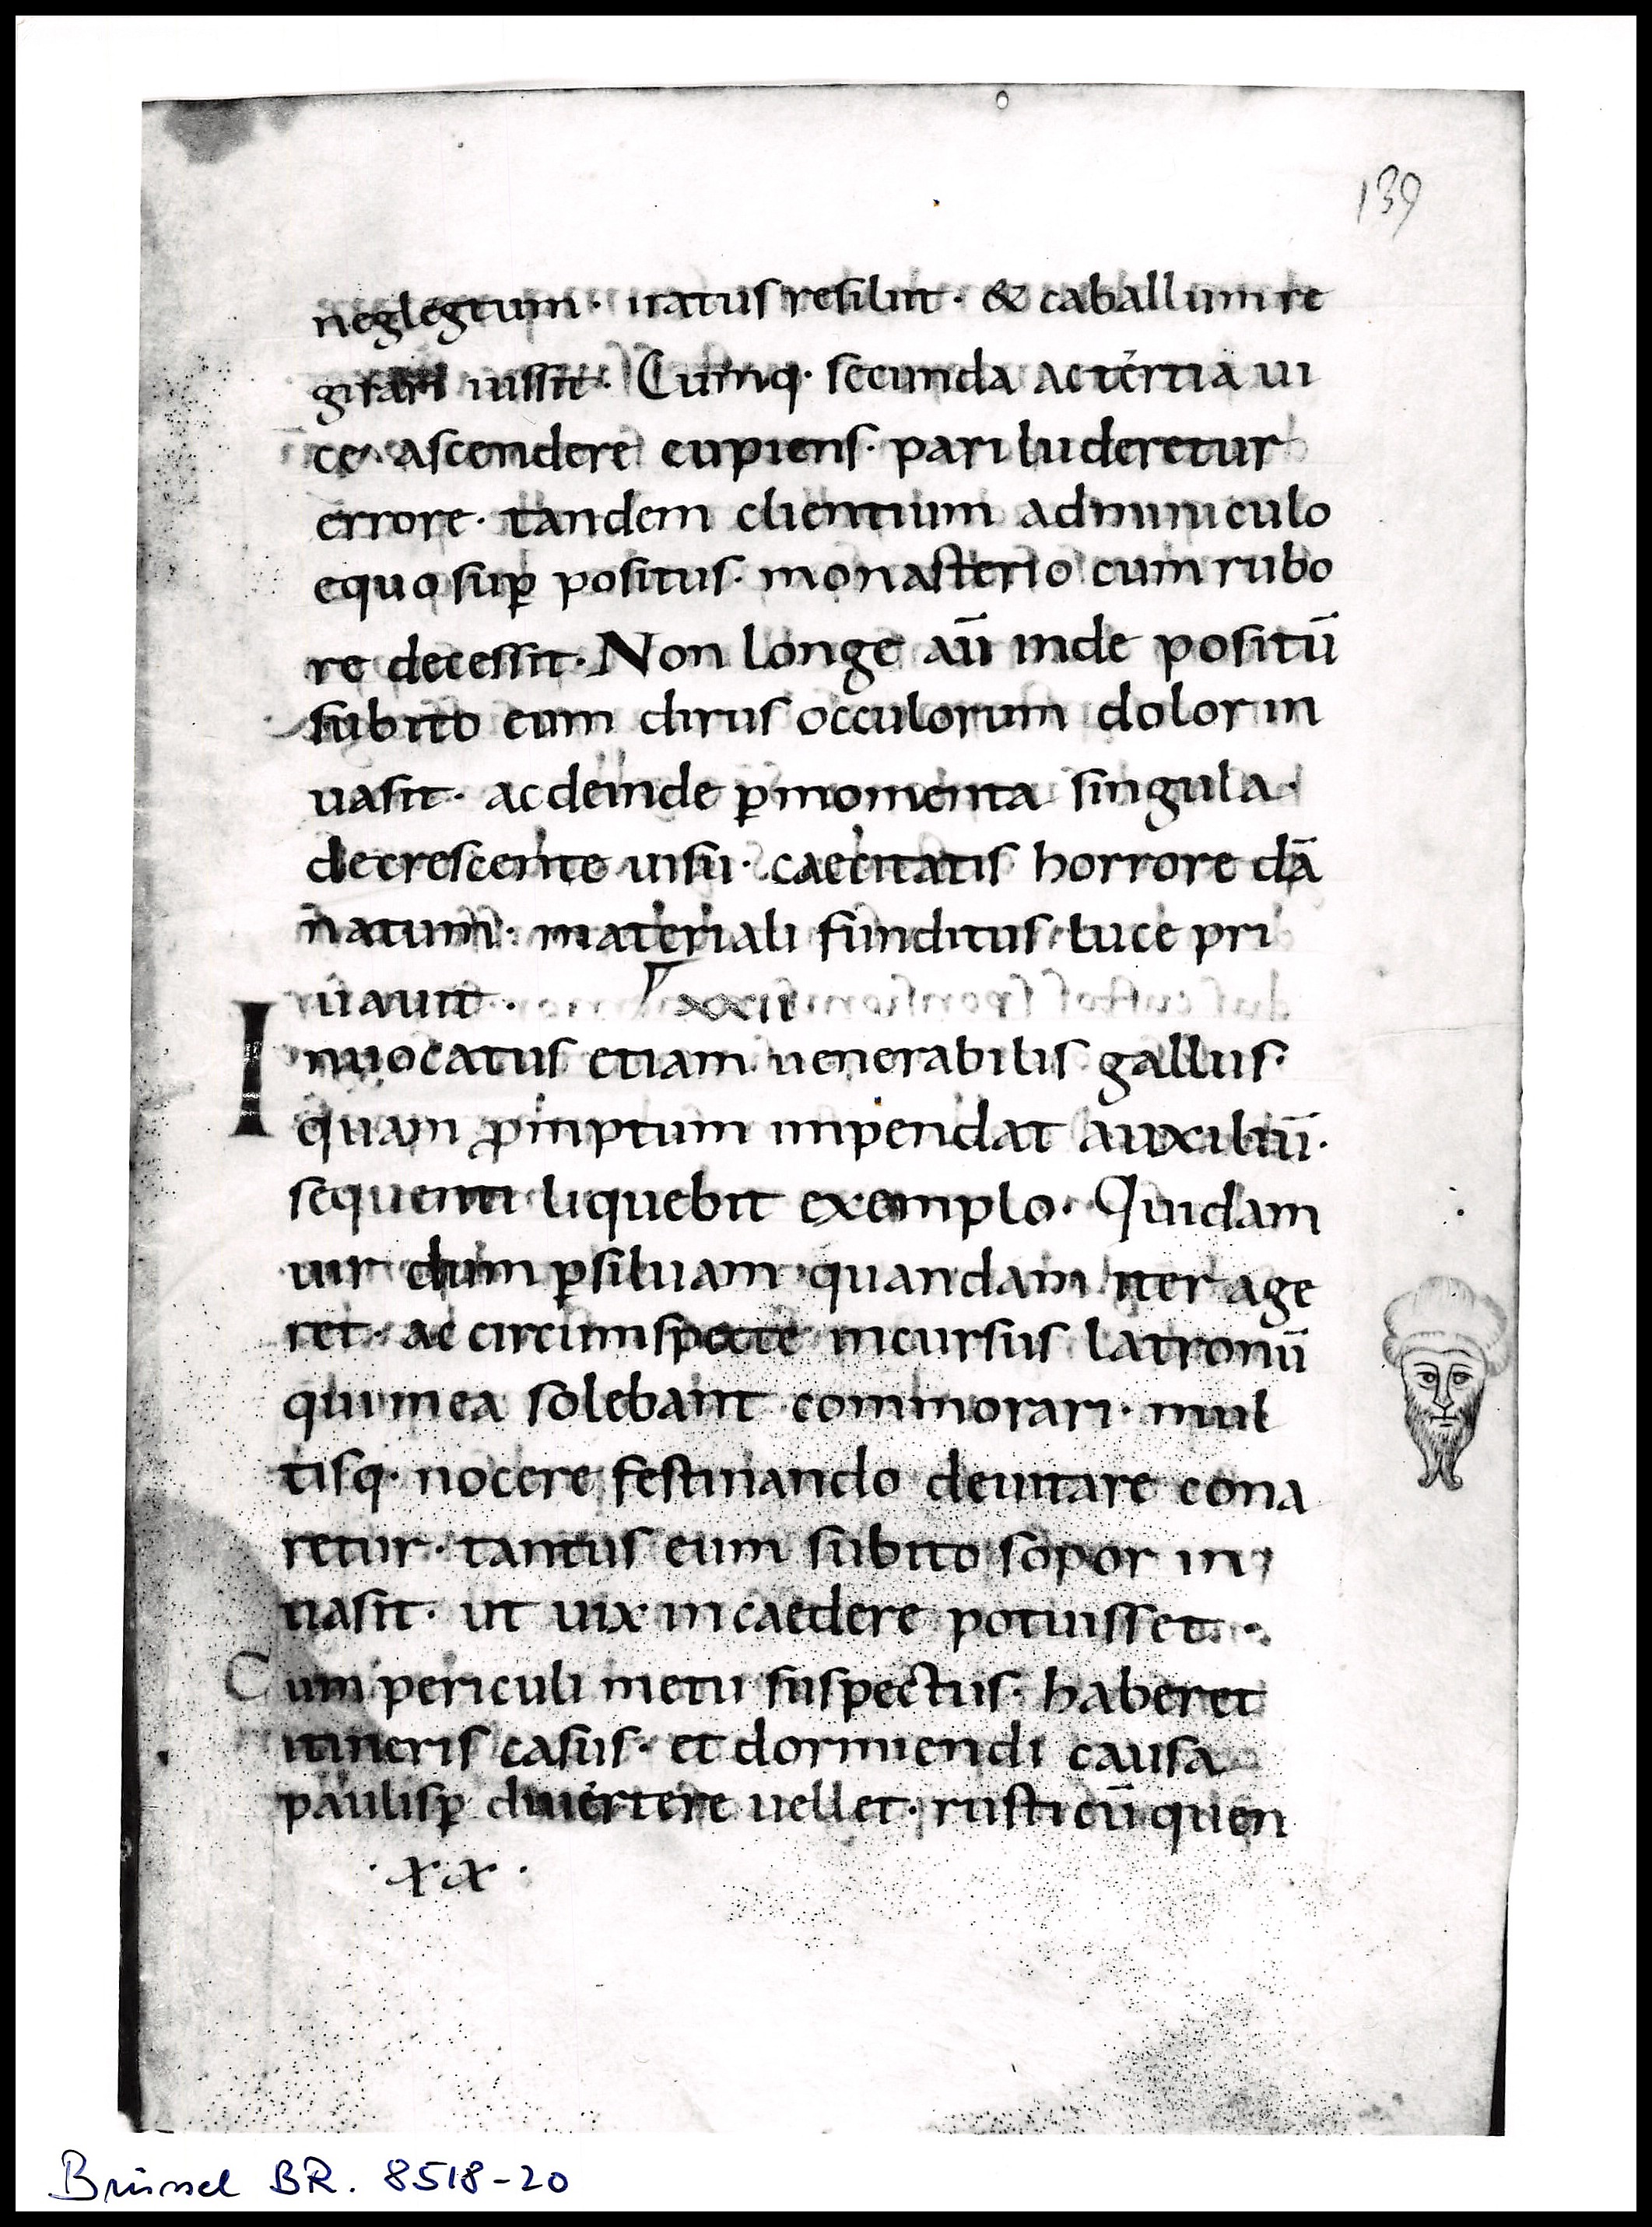 139
neglegtum · iratus resiliit · & caballum re
girari iussit · Cumq· secunda ac tertia ui
ce ascendere cupiens · pari luderetur
errore · tandem clientium adminiculo
equo sup̱ positus · monasterio cum rubo
re decessit · Non longe aū inde positū
subito eum dirus occulorum dolor in
uasit · ac deinde p̱ momenta singula ·
decrescente uisu · caecitatis horrore dā
natum · materiali funditus luce pri
uauit · xxii
Inuocatus etiam uenerabilis gallus ·
quam ꝓmptum impendat auxiliū ·
sequenti liquebit exemplo · Quidam
uir dum p̱ siluam quandam iter age
ret · ac circumspecte incursus latronū
qui in ea solebant commorari · mul
tisq· nocere festinando deuitare cona
retur · tantus eum subito sopor in
uasit · ut uix incaedere potuisset ·
Cum periculi metu suspectus · haberet
itineris casus · et dormiendi causa
paulisp̱ diuertere uellet · rusticū quen
· xx ·
Brüssel BR. 8518-20